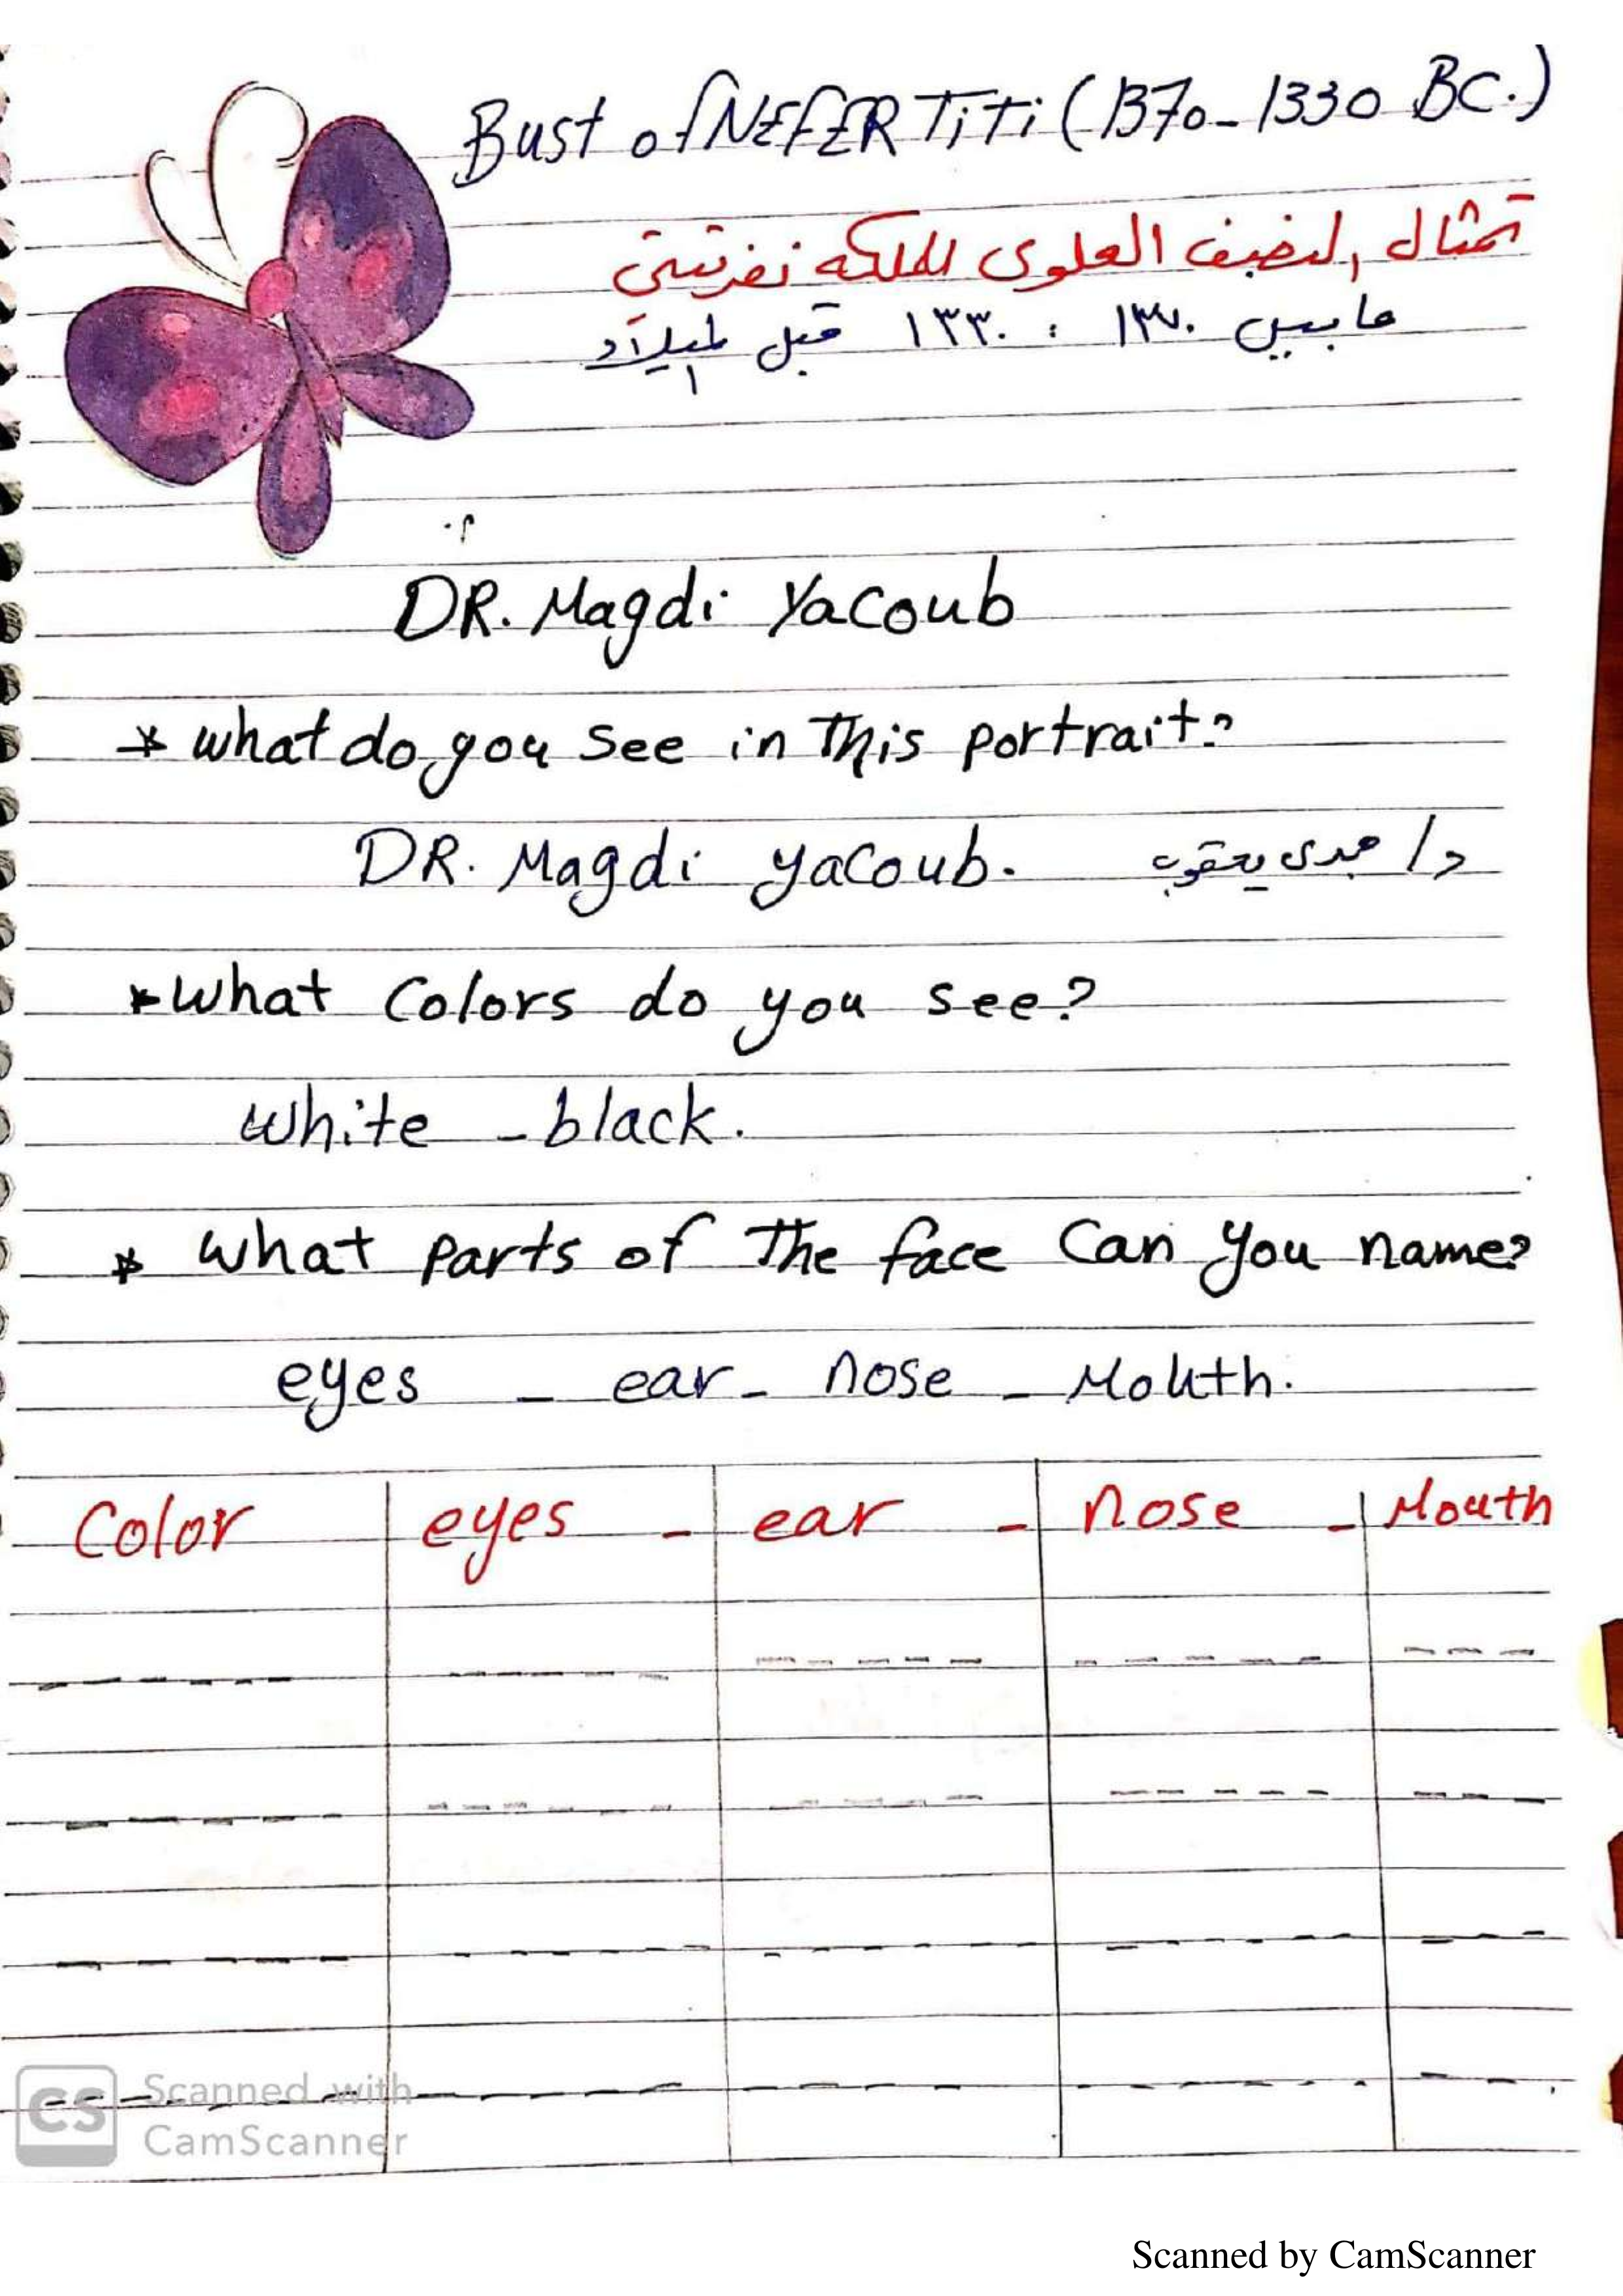 Bust of NEFERTiTi (1370-1330 BC.)
تمثال النصف العلوى للملكه نفرتيتى
مابين ١٣٧٠ : ١٣٣٠ قبل الميلاد
DR. Magdi Yacoub
* what do you see in This portrait?
DR. Magdi yacoub. د/ مجدى يعقوب
* what Colors do you see?
white - black.
* what parts of The face Can you name?
eyes - ear - nose - Mouth.
Color eyes - ear - nose - Mouth
CS Scanned with
CamScanner
Scanned by CamScanner